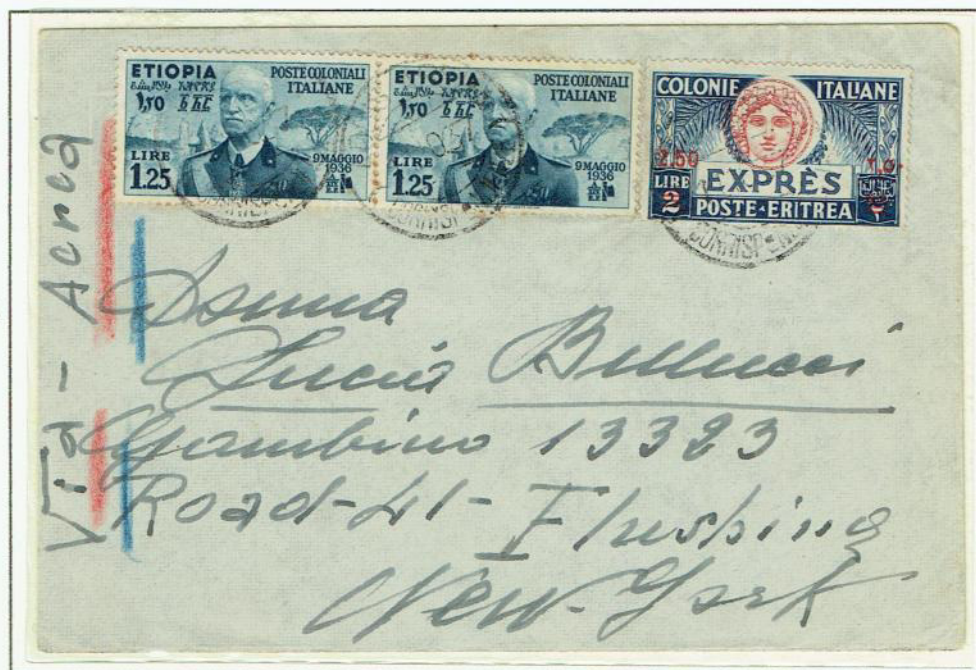 ETIOPIA
POSTE COLONIALI
ITALIANE
LIRE
1.25
9 MAGGIO
1936
ETIOPIA
POSTE COLONIALI
ITALIANE
LIRE
1.25
9 MAGGIO
1936
COLONIE ITALIANE
2.50
LIRE EXPRÈS
2 POSTE·ERITREA ٢
Via - Aerea
Donna
Lucia Bellucci
Gambino 13323
Road-41- Flushing
New-York